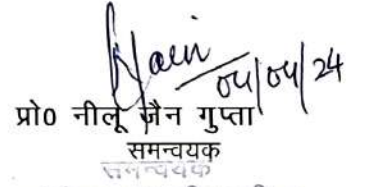 Jain
04/04/24
प्रो0 नीलू जैन गुप्ता
समन्वयक
समन्वयक